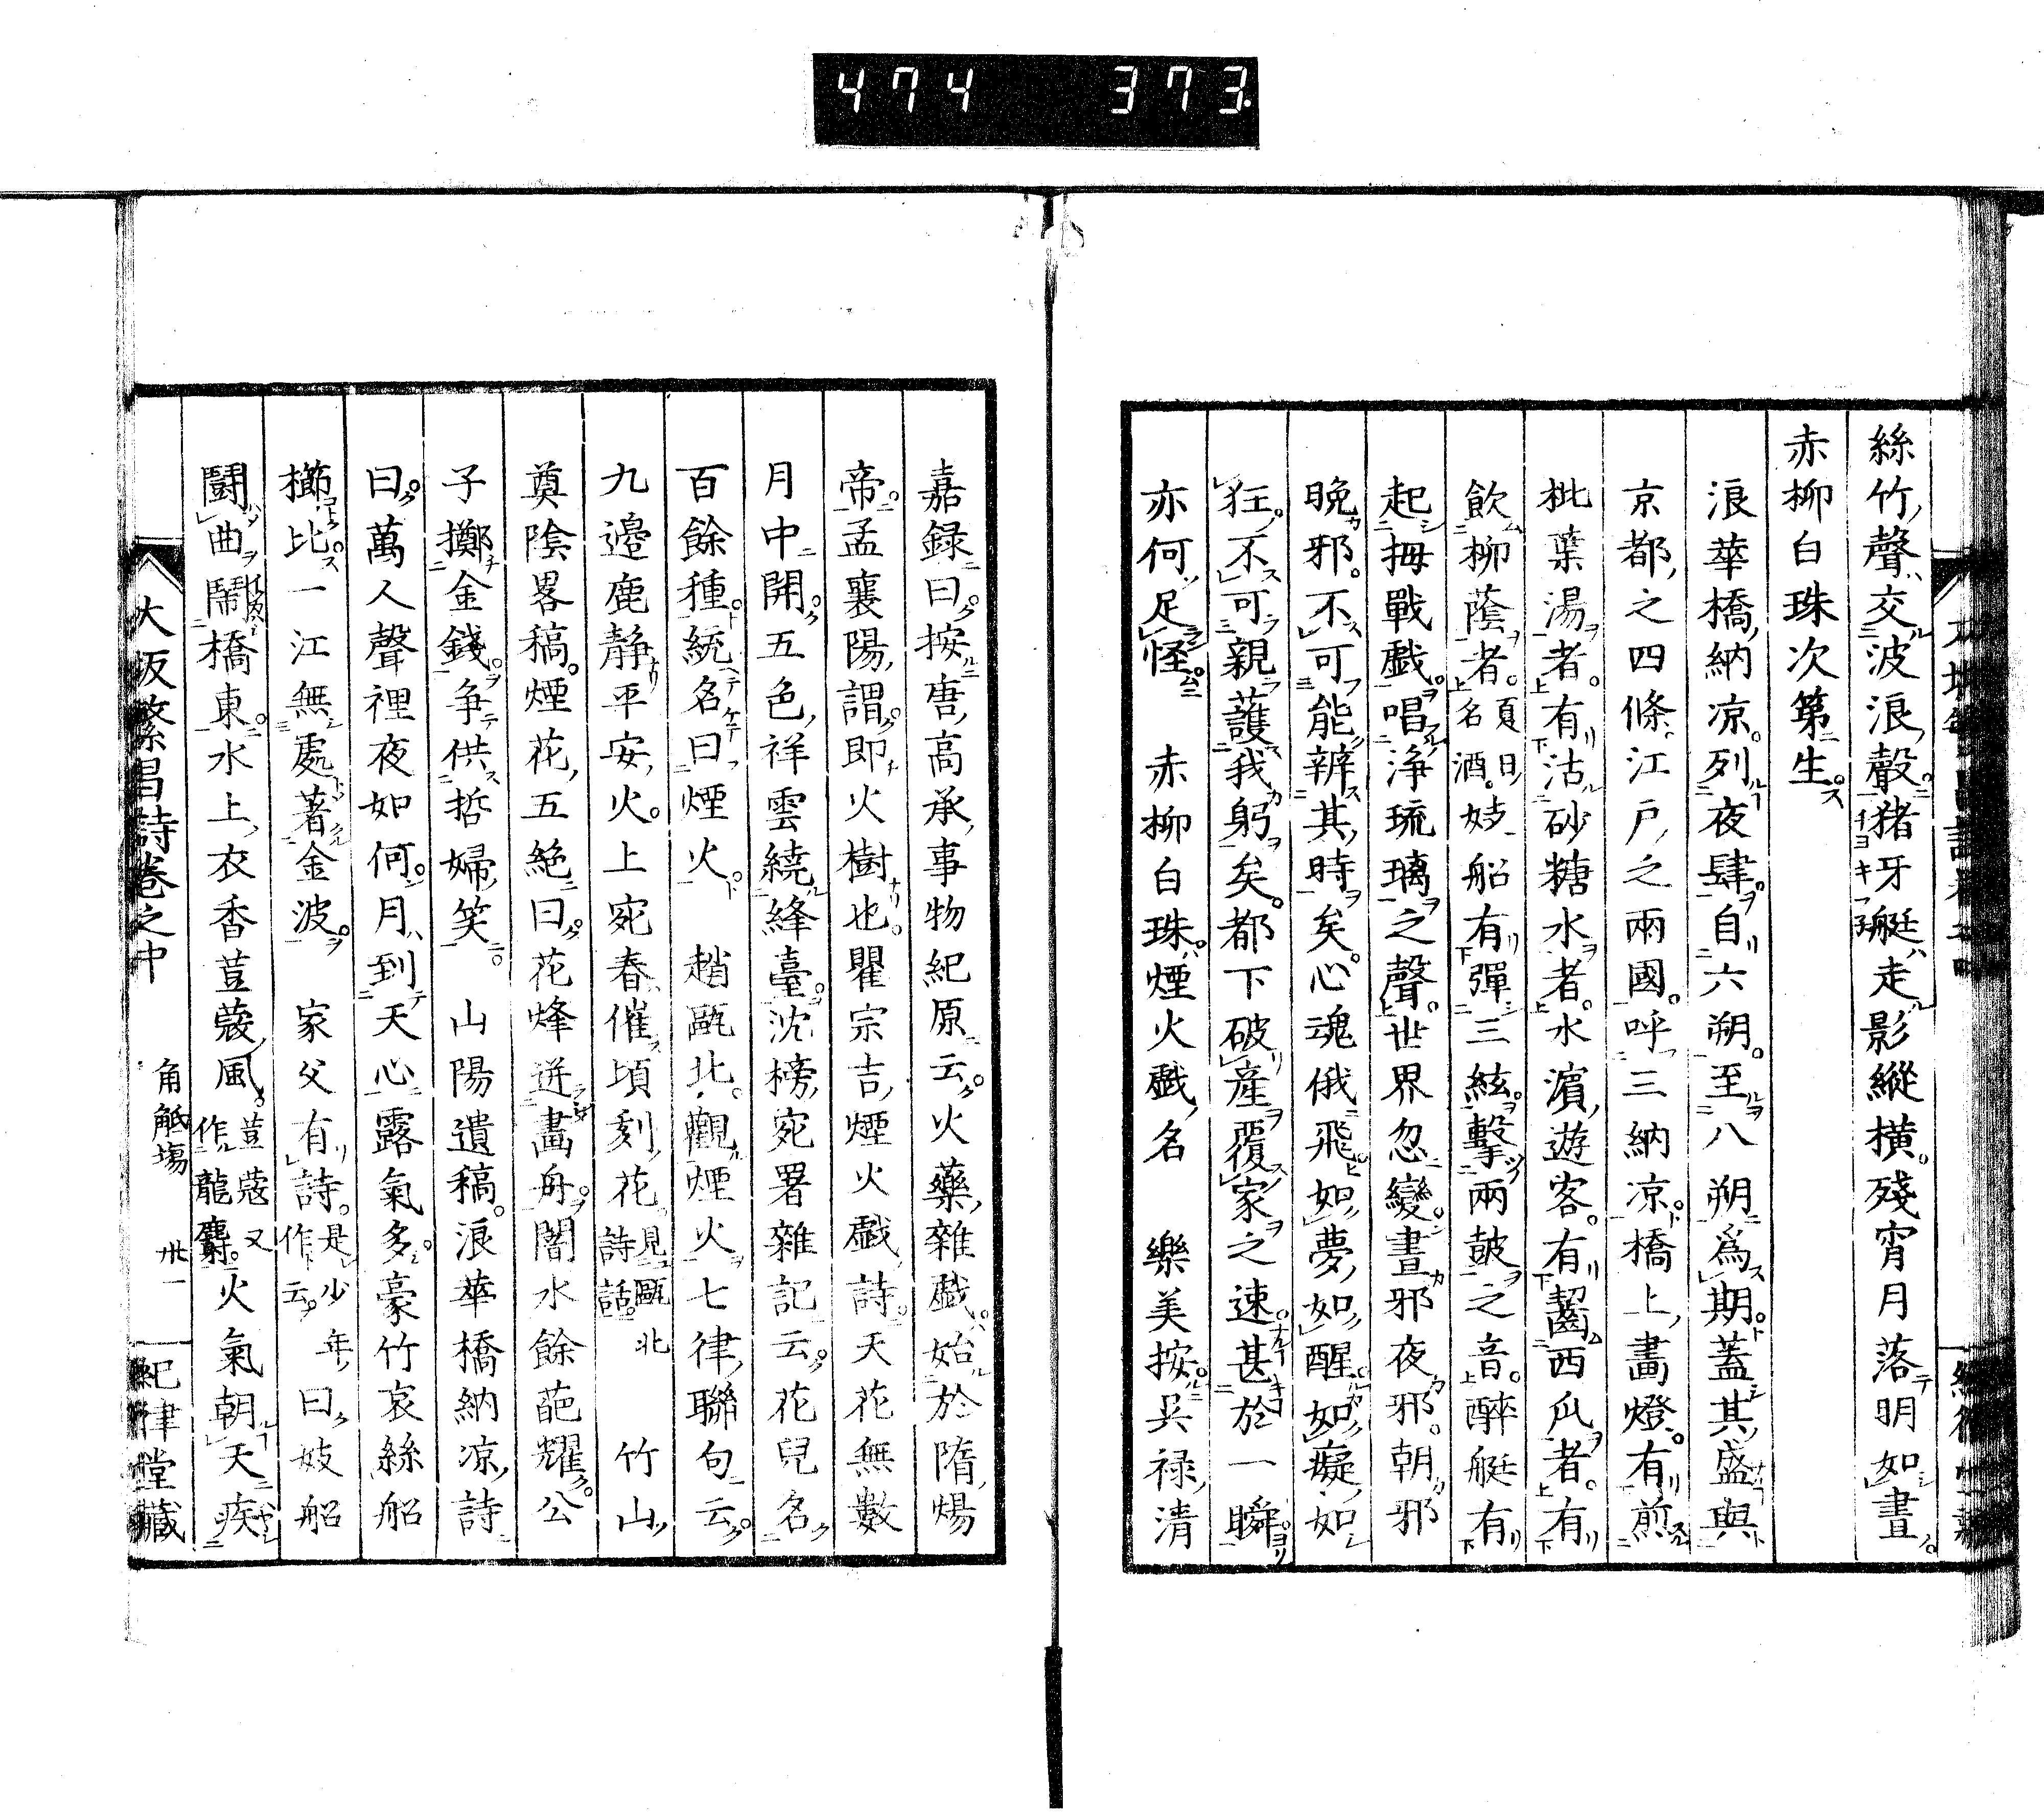 474 373
絲竹聲交波浪聲猪牙艇走影縱横殘宵月落明如晝
赤柳白珠次第生
浪華橋納凉列夜肆自六朔至八朔爲期蓋其盛與
京都之四條江戸之兩國呼三納凉橋上畵燈有煎
枇葉湯者有沽砂糖水者水濱遊客有齧西瓜者有
飲柳蔭者夏日名酒妓船有彈三絃擊兩皷之音醉艇有
起拇戰戯唱淨琉璃之聲世界忽變晝邪夜邪朝邪
晩邪不可能辨其時矣心魂俄飛如夢如醒如癡如
狂不可親護我躬矣都下破産覆家之速甚於一瞬
亦何足怪 赤柳白珠煙火戯名 樂美按呉禄清
嘉録曰按唐高承事物紀原云火藥雜戯始於隋煬
帝孟襄陽謂即火樹也瞿宗吉煙火戯詩天花無數
月中開五色祥雲繞絳臺沈榜宛署雜記云花兒名
百餘種統名曰煙火 趙甌北觀煙火七律聯句云
九邊鹿靜平安火上宛春催頃刻花見甌北詩話 竹山
奠陰畧稿煙花五絶曰花烽迸畵舟闇水餘葩耀公
子擲金錢爭供哲婦笑 山陽遺稿浪華橋納凉詩
曰萬人聲裡夜如何月到天心露氣多豪竹哀絲船
櫛比一江無處著金波 家父有詩是少年作云曰妓船
鬪曲鬧橋東水上衣香荳蔻風荳蔻又作龍麝火氣朝天疾
大阪繁昌詩卷之中 角觝塲 卅一 紀律堂藏